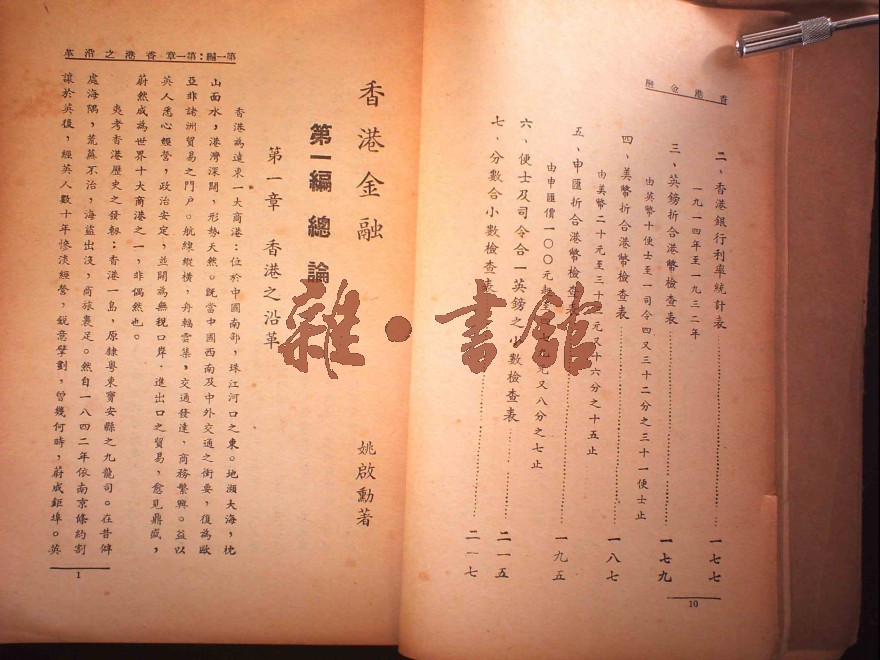 香港金融
二、香港銀行利率統計表……一七七
一九一四年至一九三二年
三、英鎊折合港幣檢查表……一七九
由英幣十便士至一司令四又三十二分之三十一便士止
四、美幣折合港幣檢查表……一八七
由美幣二十元至三十元又十六分之十五止
五、申匯折合港幣檢查表……一九五
由申匯價一〇〇元元又八分之七止
六、便士及司令合一英鎊之小數檢查表……二一五
七、分數合小數檢查表……二一七
10
香港金融
姚啟勳著
第一編 總論
第一章 香港之沿革
香港為遠東一大商港：位於中國南部，珠江河口之東。地瀕大海，枕
山面水，港灣深闊，形勢天然。既當中國西南及中外交通之衝要，復為歐
亞非諸洲貿易之門户。航線縱橫，舟輻雲集，交通發達，商務繁興。益以
英人悉心經營，政治安定，並闢為無稅口岸，進出口之貿易，愈見鼎盛，
蔚然成為世界十大商港之一，非偶然也。
夷考香港歷史之發軔：香港一島，原隸粤東寶安縣之九龍司。在昔僻
處海隅，荒蕪不治，海盜出沒，商旅裹足。然自一八四二年依南京條約割
讓於英後，經英人數十年慘淡經營，銳意擘劃，曾幾何時，蔚成鉅埠。英
第一編：第一章香港之沿革
1
雜·書館